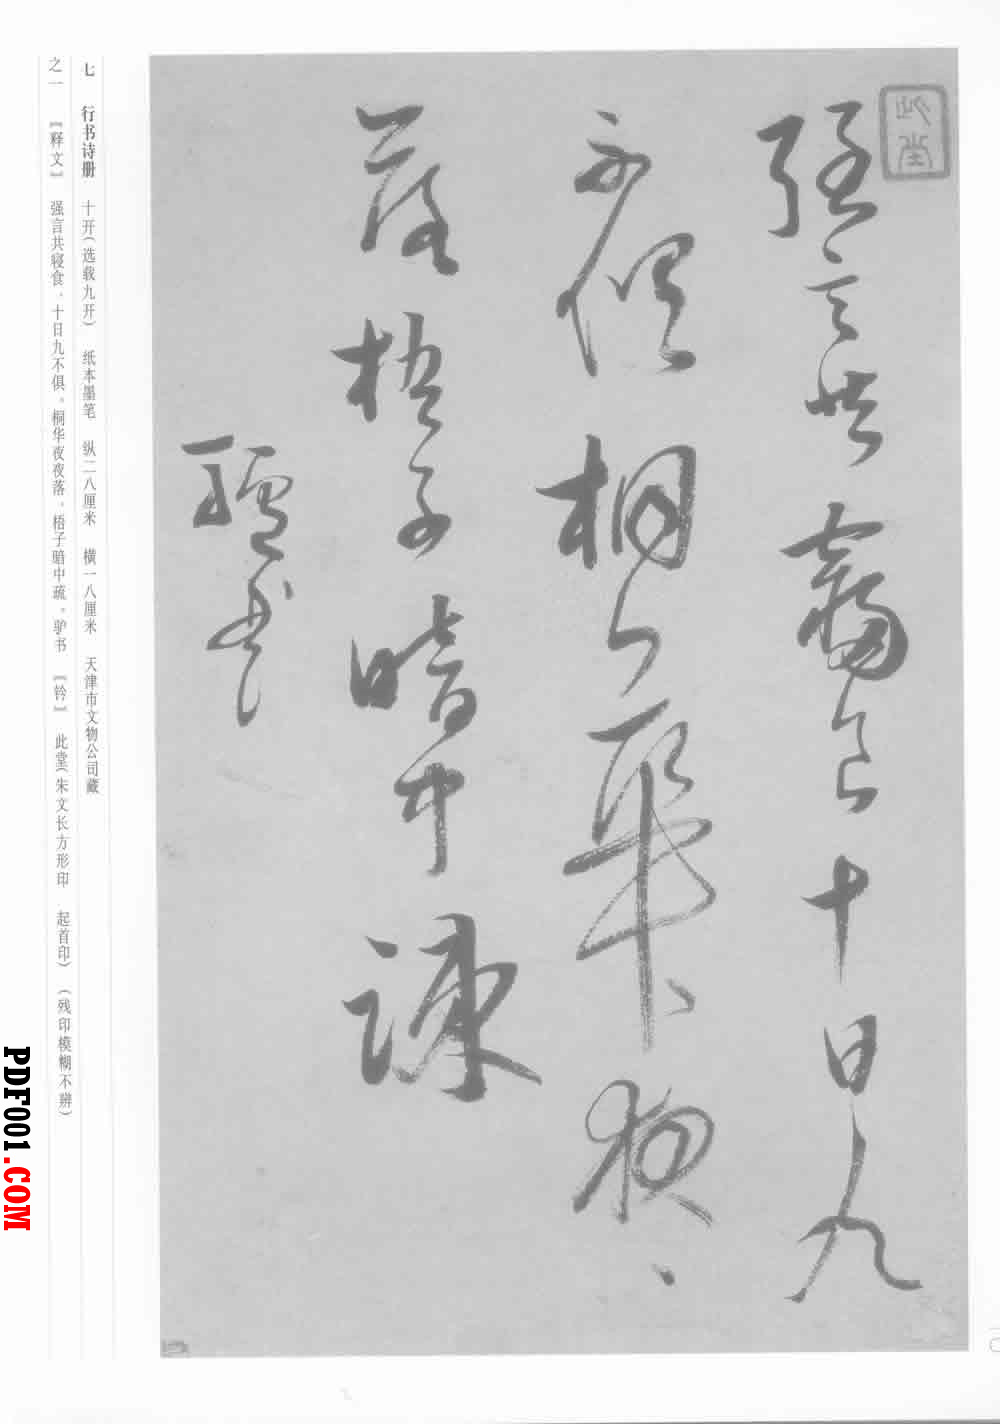 强言共寝食十日九
不俱桐华夜夜
落梧子暗中疏
驴书
此堂
七 行书诗册 十开（选载九开） 纸本墨笔 纵二八厘米 横一八厘米 天津市文物公司藏
之一 『释文』 强言共寝食，十日九不俱。桐华夜夜落，梧子暗中疏。驴书 『钤』 此堂（朱文长方形印 起首印）（残印模糊不辨）
PDF001.COM